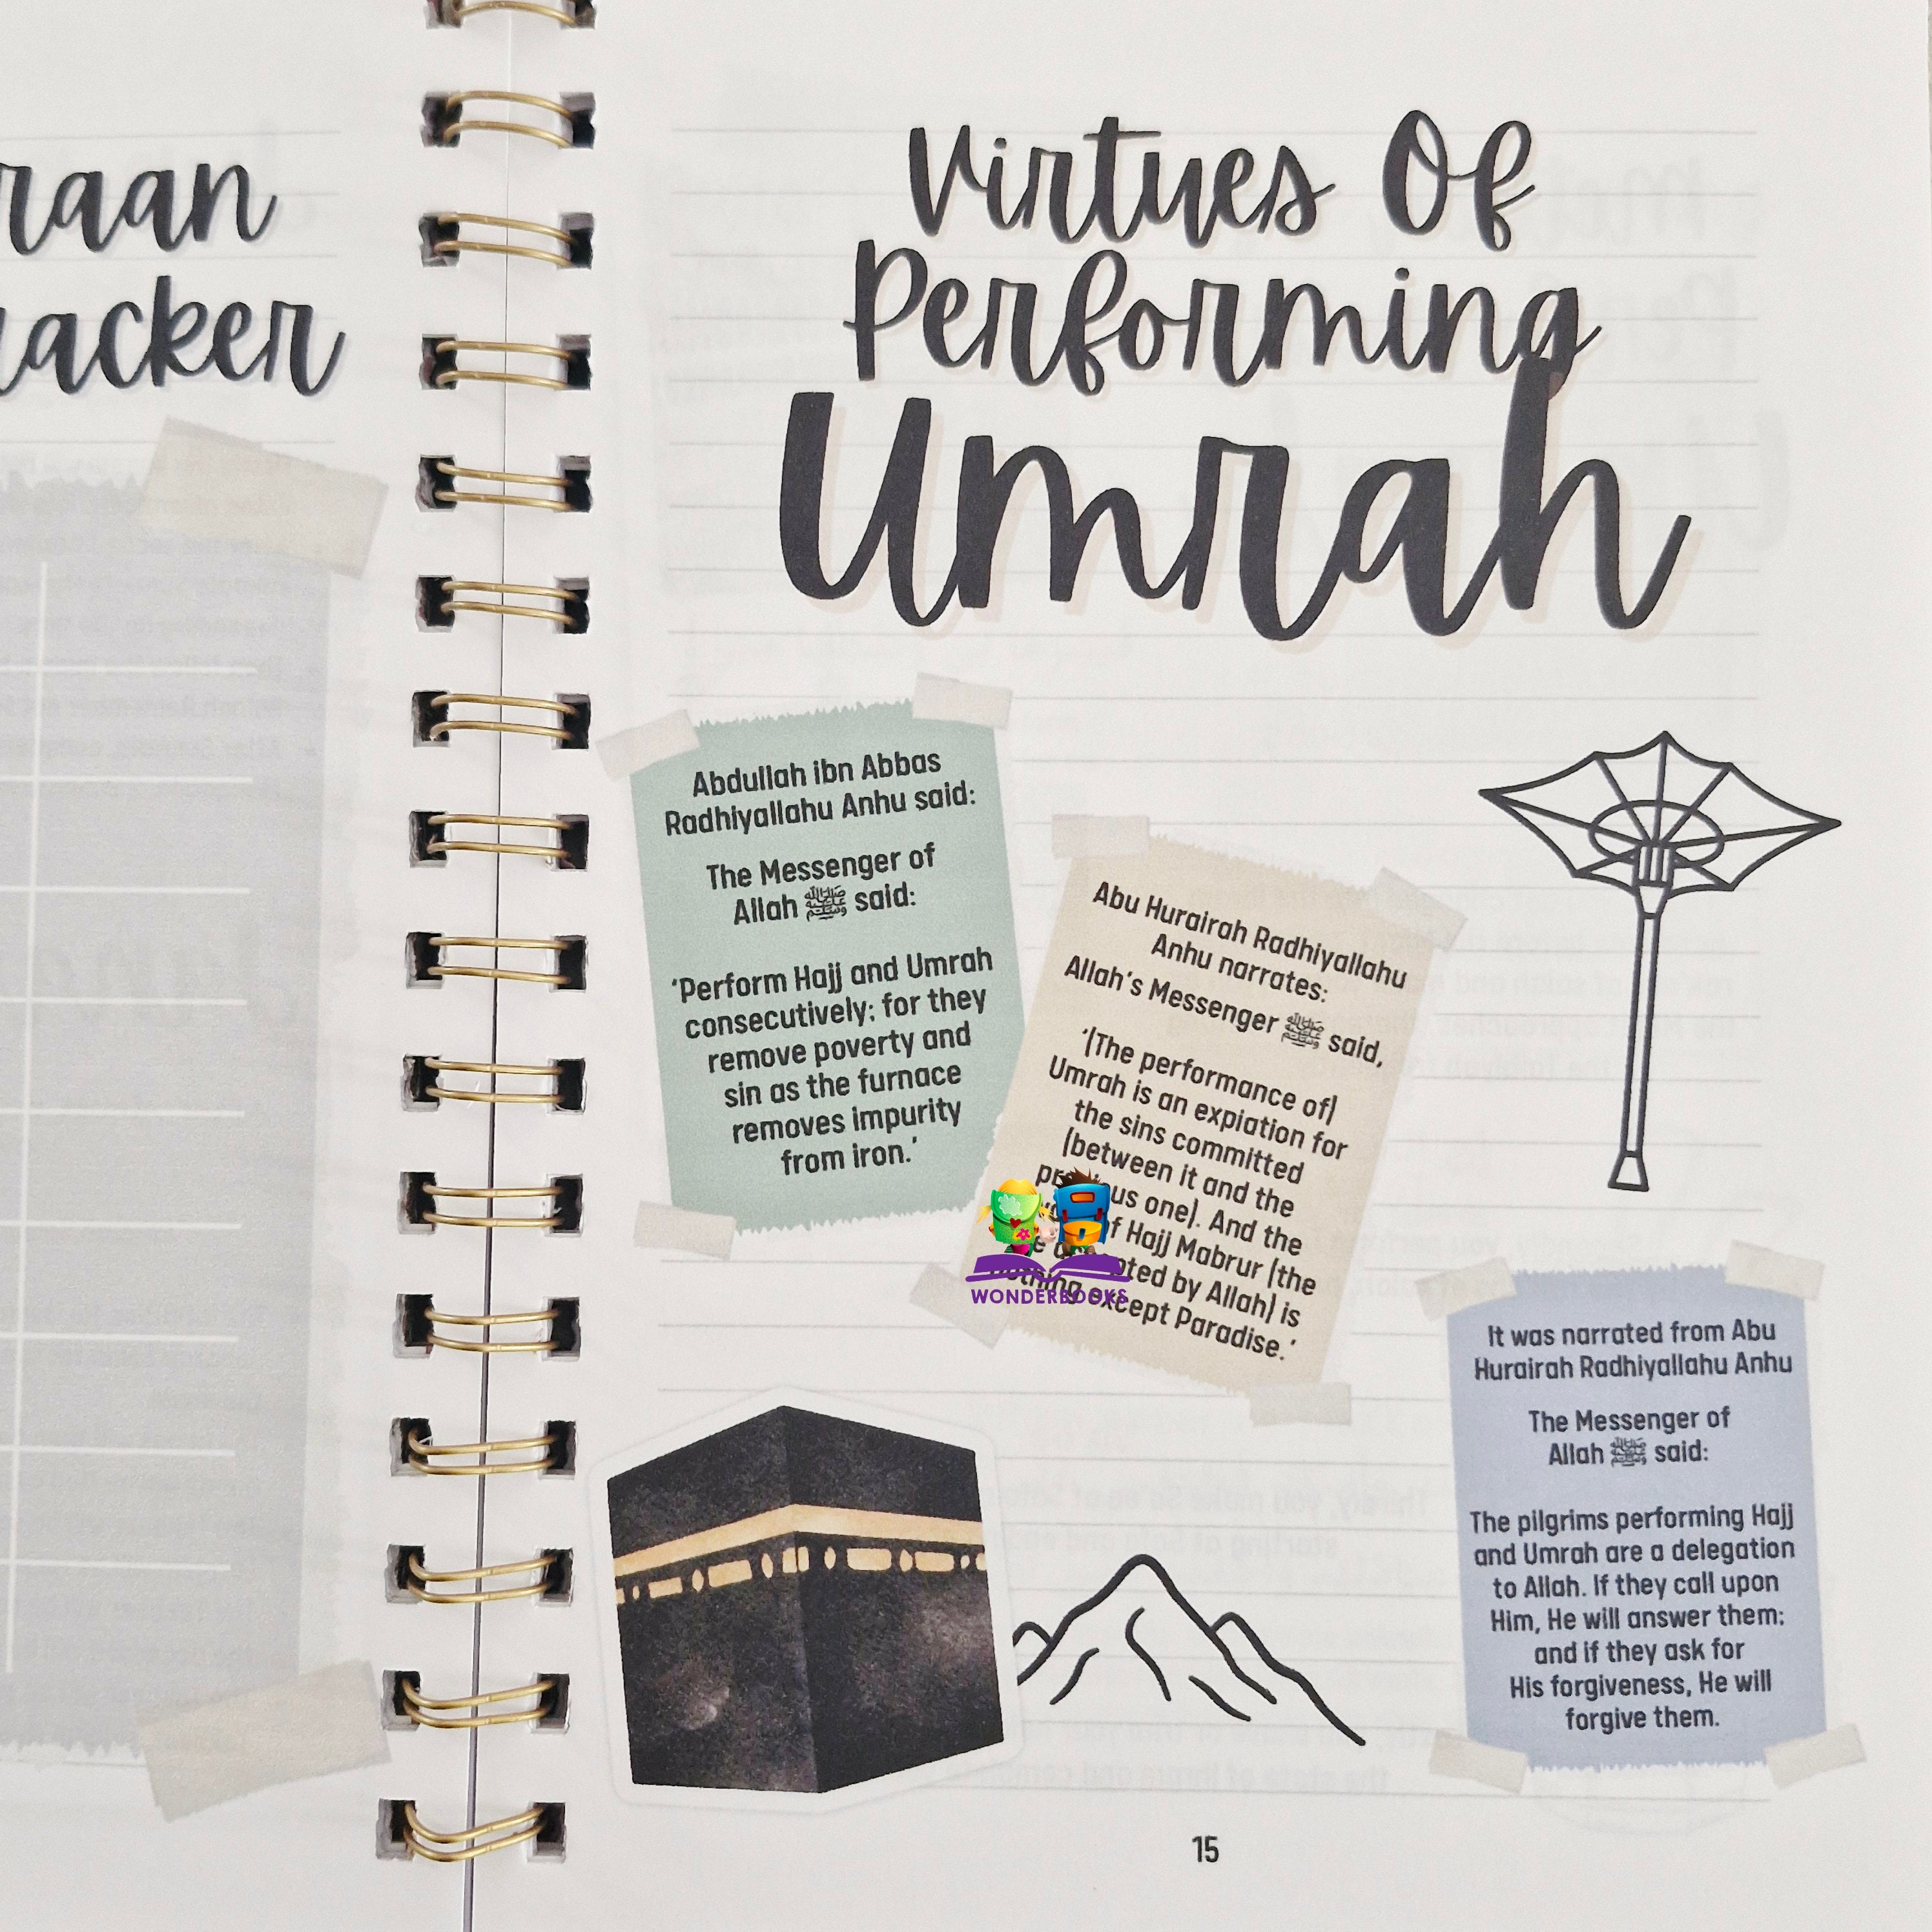 raan
acker
Virtues Of
Performing
Umrah
Abdullah ibn Abbas
Radhiyallahu Anhu said:
The Messenger of
Allah ﷺ said:
'Perform Hajj and Umrah
consecutively; for they
remove poverty and
sin as the furnace
removes impurity
from iron.'
Abu Hurairah Radhiyallahu
Anhu narrates:
Allah's Messenger ﷺ said,
'(The performance of)
Umrah is an expiation for
the sins committed
(between it and the
us one). And the
of Hajj Mabrur (the
by Allah) is
nothing except Paradise.'
WONDERBOOKS
It was narrated from Abu
Hurairah Radhiyallahu Anhu
The Messenger of
Allah ﷺ said:
The pilgrims performing Hajj
and Umrah are a delegation
to Allah. If they call upon
Him, He will answer them;
and if they ask for
His forgiveness, He will
forgive them.
15